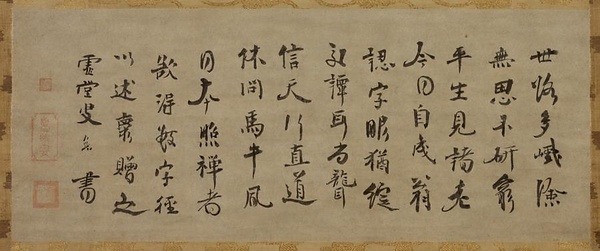 世路多巇險
無思不研窮
平生見諸老
今日自成翁
認字眼猶綻
交譚耳尚聾
信天行直道
休問馬牛風
日本照禪者
欲得數字徑
以述藁贈之
虛堂叟智愚書